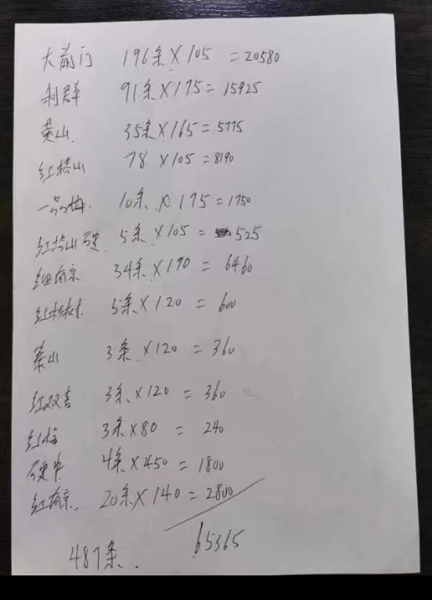 大前门 196条×105=20580
利群 91条×175=15925
黄山 35条×165=5775
红塔山 78×105=8190
一品梅 10条×175=1750
红塔山硬 5条×105=525
细南京 34条×190=6460
红杉树 5条×120=600
泰山 3条×120=360
红双喜 3条×120=360
红梅 3条×80=240
硬中 4条×450=1800
红南京 20条×140=2800
487条. 65365